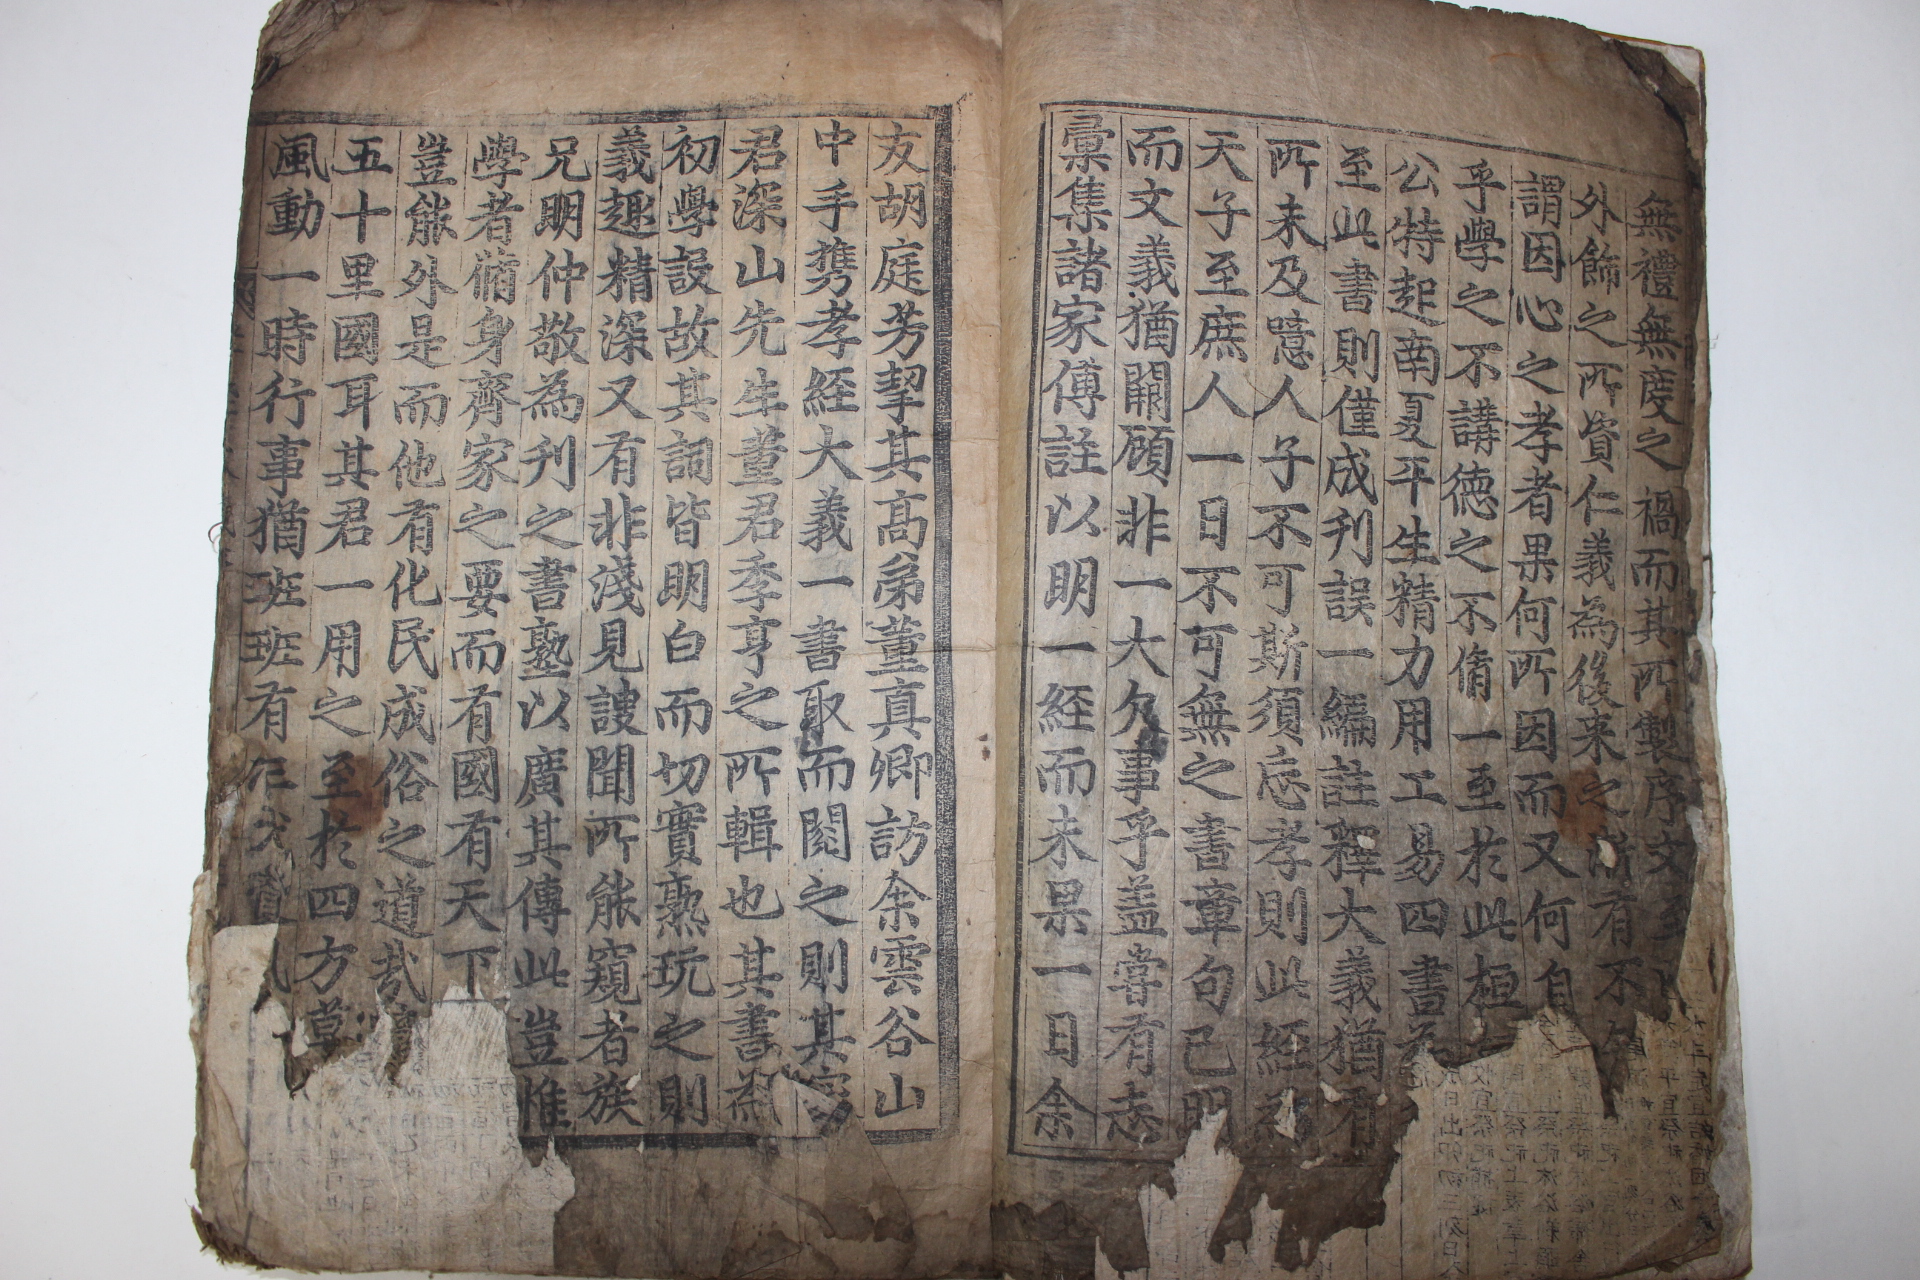 無禮無度之禍而其所製序文
外飾之所資仁義為後来之 有不
謂因心之孝者果何所因而又何自
乎學之不講德之不脩一至於此
公特起南夏平生精力用工易四書
至此書則僅成刋誤一編註釋大義猶有
所未及噫人子不可斯須忘孝則此經
天子至庶人一日不可無之書章句已明
而文義猶闕顧非一大欠事乎盖甞有志
彙集諸家傅註以明一経而未果一日余
友胡庭芳挈其高弟董真卿訪余雲谷山
中手携孝経大義一書取而閱之則其
君深山先生董君季亨之所輯也其書
初學設故其詞皆明白而切實熟玩之則
義趣精深又有非淺見謏聞所能窺者族
兄明仲敬為刋之書塾以廣其傳此豈惟
學者脩身齊家之要而有國有天下
豈能外是而他有化民成俗之道哉
五十里國耳其君一用之至於四方草
風動一時行事猶班班有